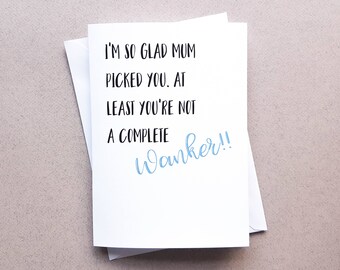 I'M SO GLAD MUM
PICKED YOU. AT
LEAST YOU'RE NOT
A COMPLETE
Wanker!!